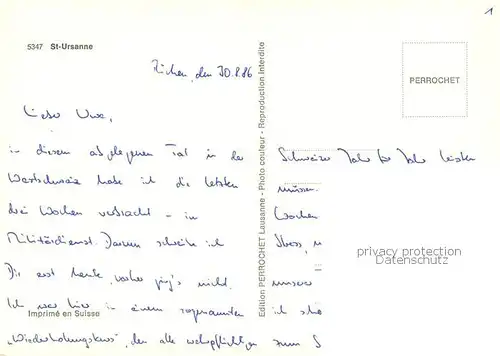 1
5347 St-Ursanne
PERROCHET
Zürchen, den 30.8.86
Lieber Uwe,
in diesem abgelegenen Tal in der
Westschweiz habe ich die letzten
drei Wochen verbracht - im
Militärdienst. Darum schreibe ich
Dir erst heute, vorher ging's nicht.
Ich war hier in einem sogenannten
„Wiederholungskurs", den alle wehrpflichtigen
Imprimé en Suisse
Edition PERROCHET Lausanne - Photo couleur - Reproduction Interdite
Schweizer Jahr für Jahr leisten
müssen.
Wochen
Stress, u
unserer
ich
zum S
privacy protection
Datenschutz